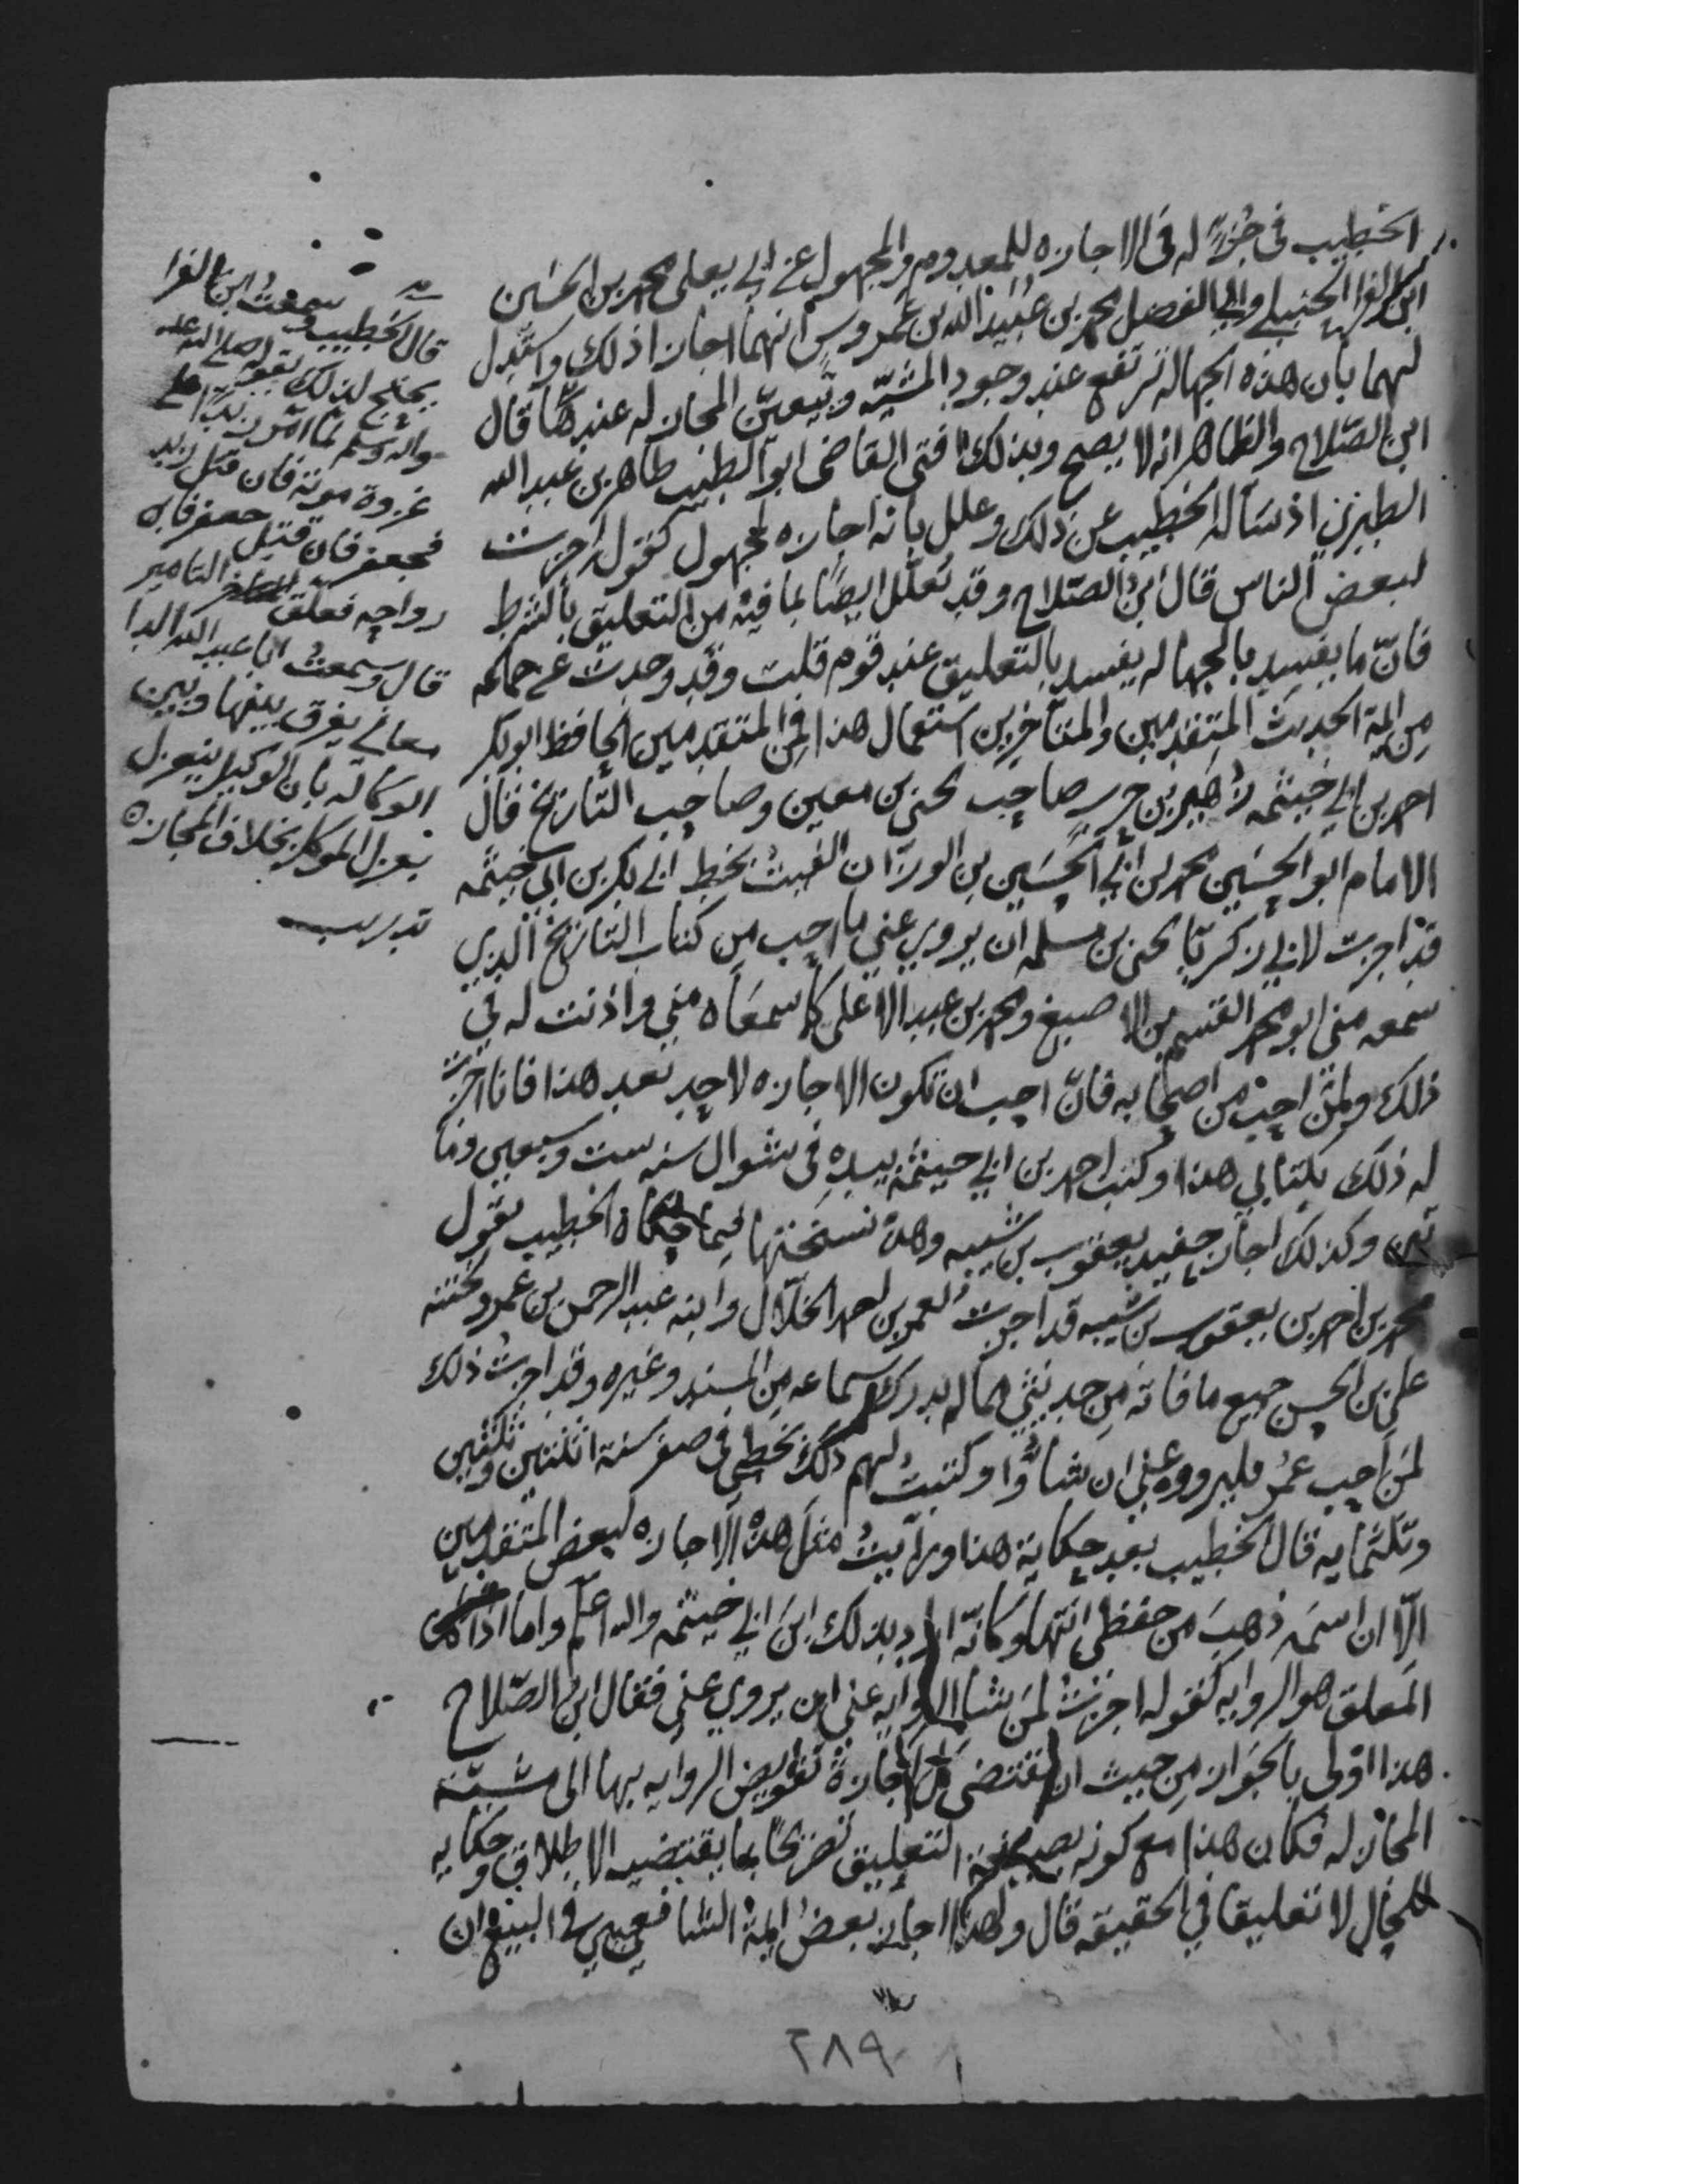 الخطيب في جزء له في الاجازه للمعدوم والمجهول عن ابي يعلى محمد بن الحسين
ابن الفرا الحنبلي وابي الفضل محمد بن عبيد الله بن عمروس انهما اجازا ذلك واستدل
لهما بان هذه الجهاله ترتفع عند وجود المشيه ويتعين المجاز له عندها قال
ابن الصلاح والظاهر انه لا يصح وبذلك افتى القاضي ابو الطيب طاهر بن عبد الله
الطبري اذ سأله الخطيب عن ذلك وعلل بانه اجازه لمجهول كقوله اجزت
لبعض الناس قال ابن الصلاح وقد تعلل ايضا بما فيه من التعليق بالشرط
فان ما يفسد بالجهاله يفسد بالتعليق عند قوم قلت وقد وجدت عن جماعه
من ايمة الحديث المتقدمين والمتأخرين استعمال هذا فمن المتقدمين الحافظ ابو بكر
احمد بن ابي خيثمه زهير بن حرب صاحب يحيى بن معين وصاحب التاريخ قال
الامام ابو الحسن محمد بن ابي الحسين بن الوزان الفيت بخط ابي بكر بن ابي خيثمه
قد اجزت لابي زكريا يحيى بن مسلمه ان يروي عني ما احب من كتاب التاريخ الذي
سمعه مني ابو محمد القسم بن الاصبغ ومحمد بن عبد الاعلى كما سمعاه مني واذنت له في
ذلك ولمن احب من اصحابه فان احب ان تكون الاجازه لاحد بعد هذا فانا اجزت
له ذلك بكتابي هذا وكتب احمد بن ابي خيثمة بيده في شوال سنه ست وسبعين وما
تين وكذلك اجاز حفيد يعقوب بن شيبه وهذه نسختها فيما حكاه الخطيب يقول
محمد بن احمد بن يعقوب بن شيبه قد اجزت لعمر بن احمد الخلال وابنه عبد الرحمن بن عمر وختنه
علي بن الحسن جميع ما فاته من حديثي مما لم يدرك سماعه من المسند وغيره وقد اجزت ذلك
لمن احب عمر فليرووه عني ان شاؤا وكتبت لهم ذلك بخطي في صفر سنة اثنتين وثلثين
وثلثمايه قال الخطيب بعد حكاية هذا ورأيت مثل هذه الاجازه لبعض المتقدمين
الا ان اسمه ذهب من حفظي انتهى وكانه اراد بذلك ابن ابي خيثمه والله اعلم واما اذا كان
المعلق هو الروايه كقوله اجزت لمن شا الروايه عني ان يروي عني فقال ابن الصلاح
هذا اولى بالجواز من حيث ان مقتضى كل اجازة تفويض الروايه بها الى مشيئة
المجاز له فكان هذا مع كونه بصيغة التعليق تصريحا بما يقتضيه الاطلاق وحكايه
للحال لا تعليقا في الحقيقه قال ولهذا اجاز بعض ايمة الشافعيين في البيع ان
قال الخطيب وسمعت ابن الفرا
يحتج لذلك بقوله صلى الله عليه
واله وسلم لما امر زيدا على
غزوة موته فان قتل زيد
فجعفر فان قتل جعفر فابن
رواحه فعلق التامير
قال وسمعت ابا عبد الله الدا
مغاني يفرق بينها وبين
الوكاله بان الوكيل ينعزل
بعزل الموكل بخلاف المجازه
تدريب
٢٨٩